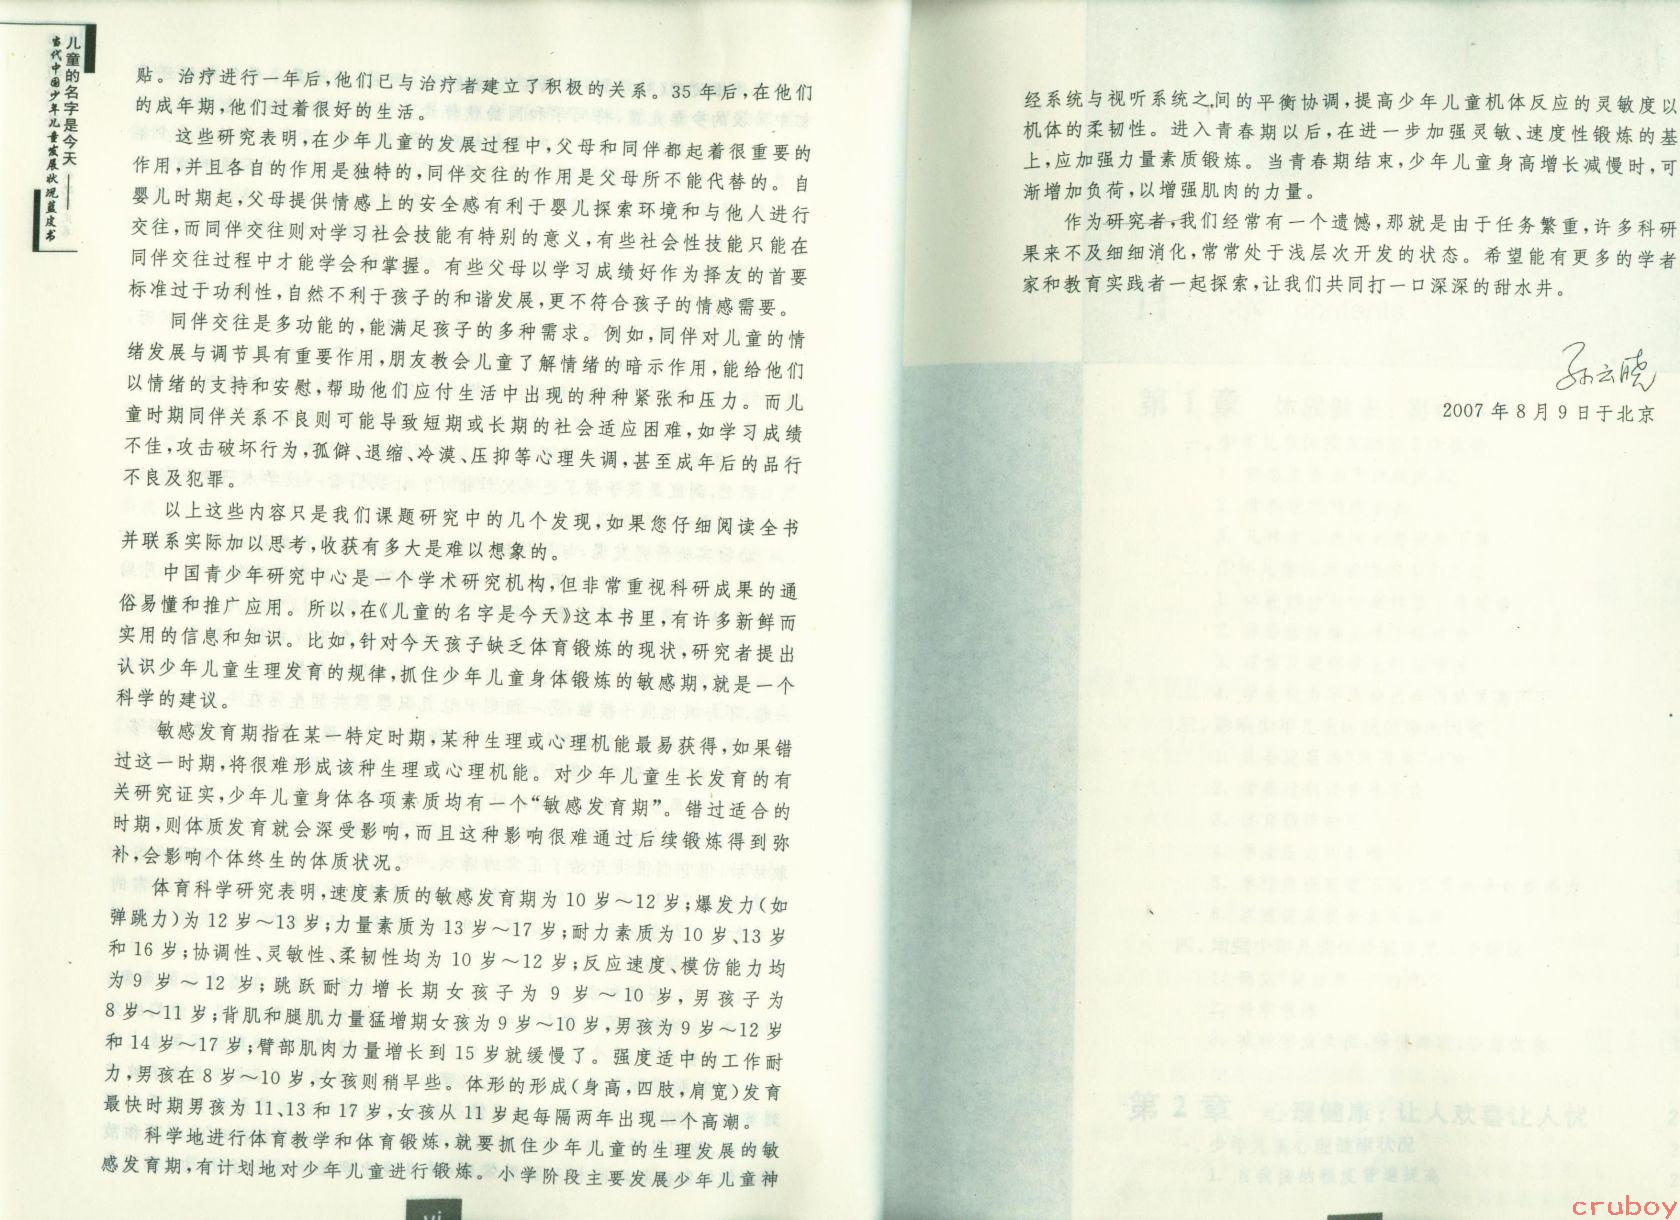 儿童的名字是今天——
当代中国少年儿童发展状况蓝皮书
贴。治疗进行一年后,他们已与治疗者建立了积极的关系。35年后,在他们
的成年期,他们过着很好的生活。
这些研究表明,在少年儿童的发展过程中,父母和同伴都起着很重要的
作用,并且各自的作用是独特的,同伴交往的作用是父母所不能代替的。自
婴儿时期起,父母提供情感上的安全感有利于婴儿探索环境和与他人进行
交往,而同伴交往则对学习社会技能有特别的意义,有些社会性技能只能在
同伴交往过程中才能学会和掌握。有些父母以学习成绩好作为择友的首要
标准过于功利性,自然不利于孩子的和谐发展,更不符合孩子的情感需要。
同伴交往是多功能的,能满足孩子的多种需求。例如,同伴对儿童的情
绪发展与调节具有重要作用,朋友教会儿童了解情绪的暗示作用,能给他们
以情绪的支持和安慰,帮助他们应付生活中出现的种种紧张和压力。而儿
童时期同伴关系不良则可能导致短期或长期的社会适应困难,如学习成绩
不佳,攻击破坏行为,孤僻、退缩、冷漠、压抑等心理失调,甚至成年后的品行
不良及犯罪。
以上这些内容只是我们课题研究中的几个发现,如果您仔细阅读全书
并联系实际加以思考,收获有多大是难以想象的。
中国青少年研究中心是一个学术研究机构,但非常重视科研成果的通
俗易懂和推广应用。所以,在《儿童的名字是今天》这本书里,有许多新鲜而
实用的信息和知识。比如,针对今天孩子缺乏体育锻炼的现状,研究者提出
认识少年儿童生理发育的规律,抓住少年儿童身体锻炼的敏感期,就是一个
科学的建议。
敏感发育期指在某一特定时期,某种生理或心理机能最易获得,如果错
过这一时期,将很难形成该种生理或心理机能。对少年儿童生长发育的有
关研究证实,少年儿童身体各项素质均有一个“敏感发育期”。错过适合的
时期,则体质发育就会深受影响,而且这种影响很难通过后续锻炼得到弥
补,会影响个体终生的体质状况。
体育科学研究表明,速度素质的敏感发育期为10岁～12岁;爆发力(如
弹跳力)为12岁～13岁;力量素质为13岁～17岁;耐力素质为10岁、13岁
和16岁;协调性、灵敏性、柔韧性均为10岁～12岁;反应速度、模仿能力均
为9岁～12岁;跳跃耐力增长期女孩子为9岁～10岁,男孩子为
8岁～11岁;背肌和腿肌力量猛增期女孩为9岁～10岁,男孩为9岁～12岁
和14岁～17岁;臂部肌肉力量增长到15岁就缓慢了。强度适中的工作耐
力,男孩在8岁～10岁,女孩则稍早些。体形的形成(身高,四肢,肩宽)发育
最快时期男孩为11、13和17岁,女孩从11岁起每隔两年出现一个高潮。
科学地进行体育教学和体育锻炼,就要抓住少年儿童的生理发展的敏
感发育期,有计划地对少年儿童进行锻炼。小学阶段主要发展少年儿童神
vi
经系统与视听系统之间的平衡协调,提高少年儿童机体反应的灵敏度以
机体的柔韧性。进入青春期以后,在进一步加强灵敏、速度性锻炼的基
上,应加强力量素质锻炼。当青春期结束,少年儿童身高增长减慢时,可
渐增加负荷,以增强肌肉的力量。
作为研究者,我们经常有一个遗憾,那就是由于任务繁重,许多科研
果来不及细细消化,常常处于浅层次开发的状态。希望能有更多的学者
家和教育实践者一起探索,让我们共同打一口深深的甜水井。
孙云晓
2007年8月9日于北京
第1章
第2章 心理健康:让人欢喜让人忧
一、少年儿童心理健康状况
1. 自我接纳程度普遍提高
cruboy